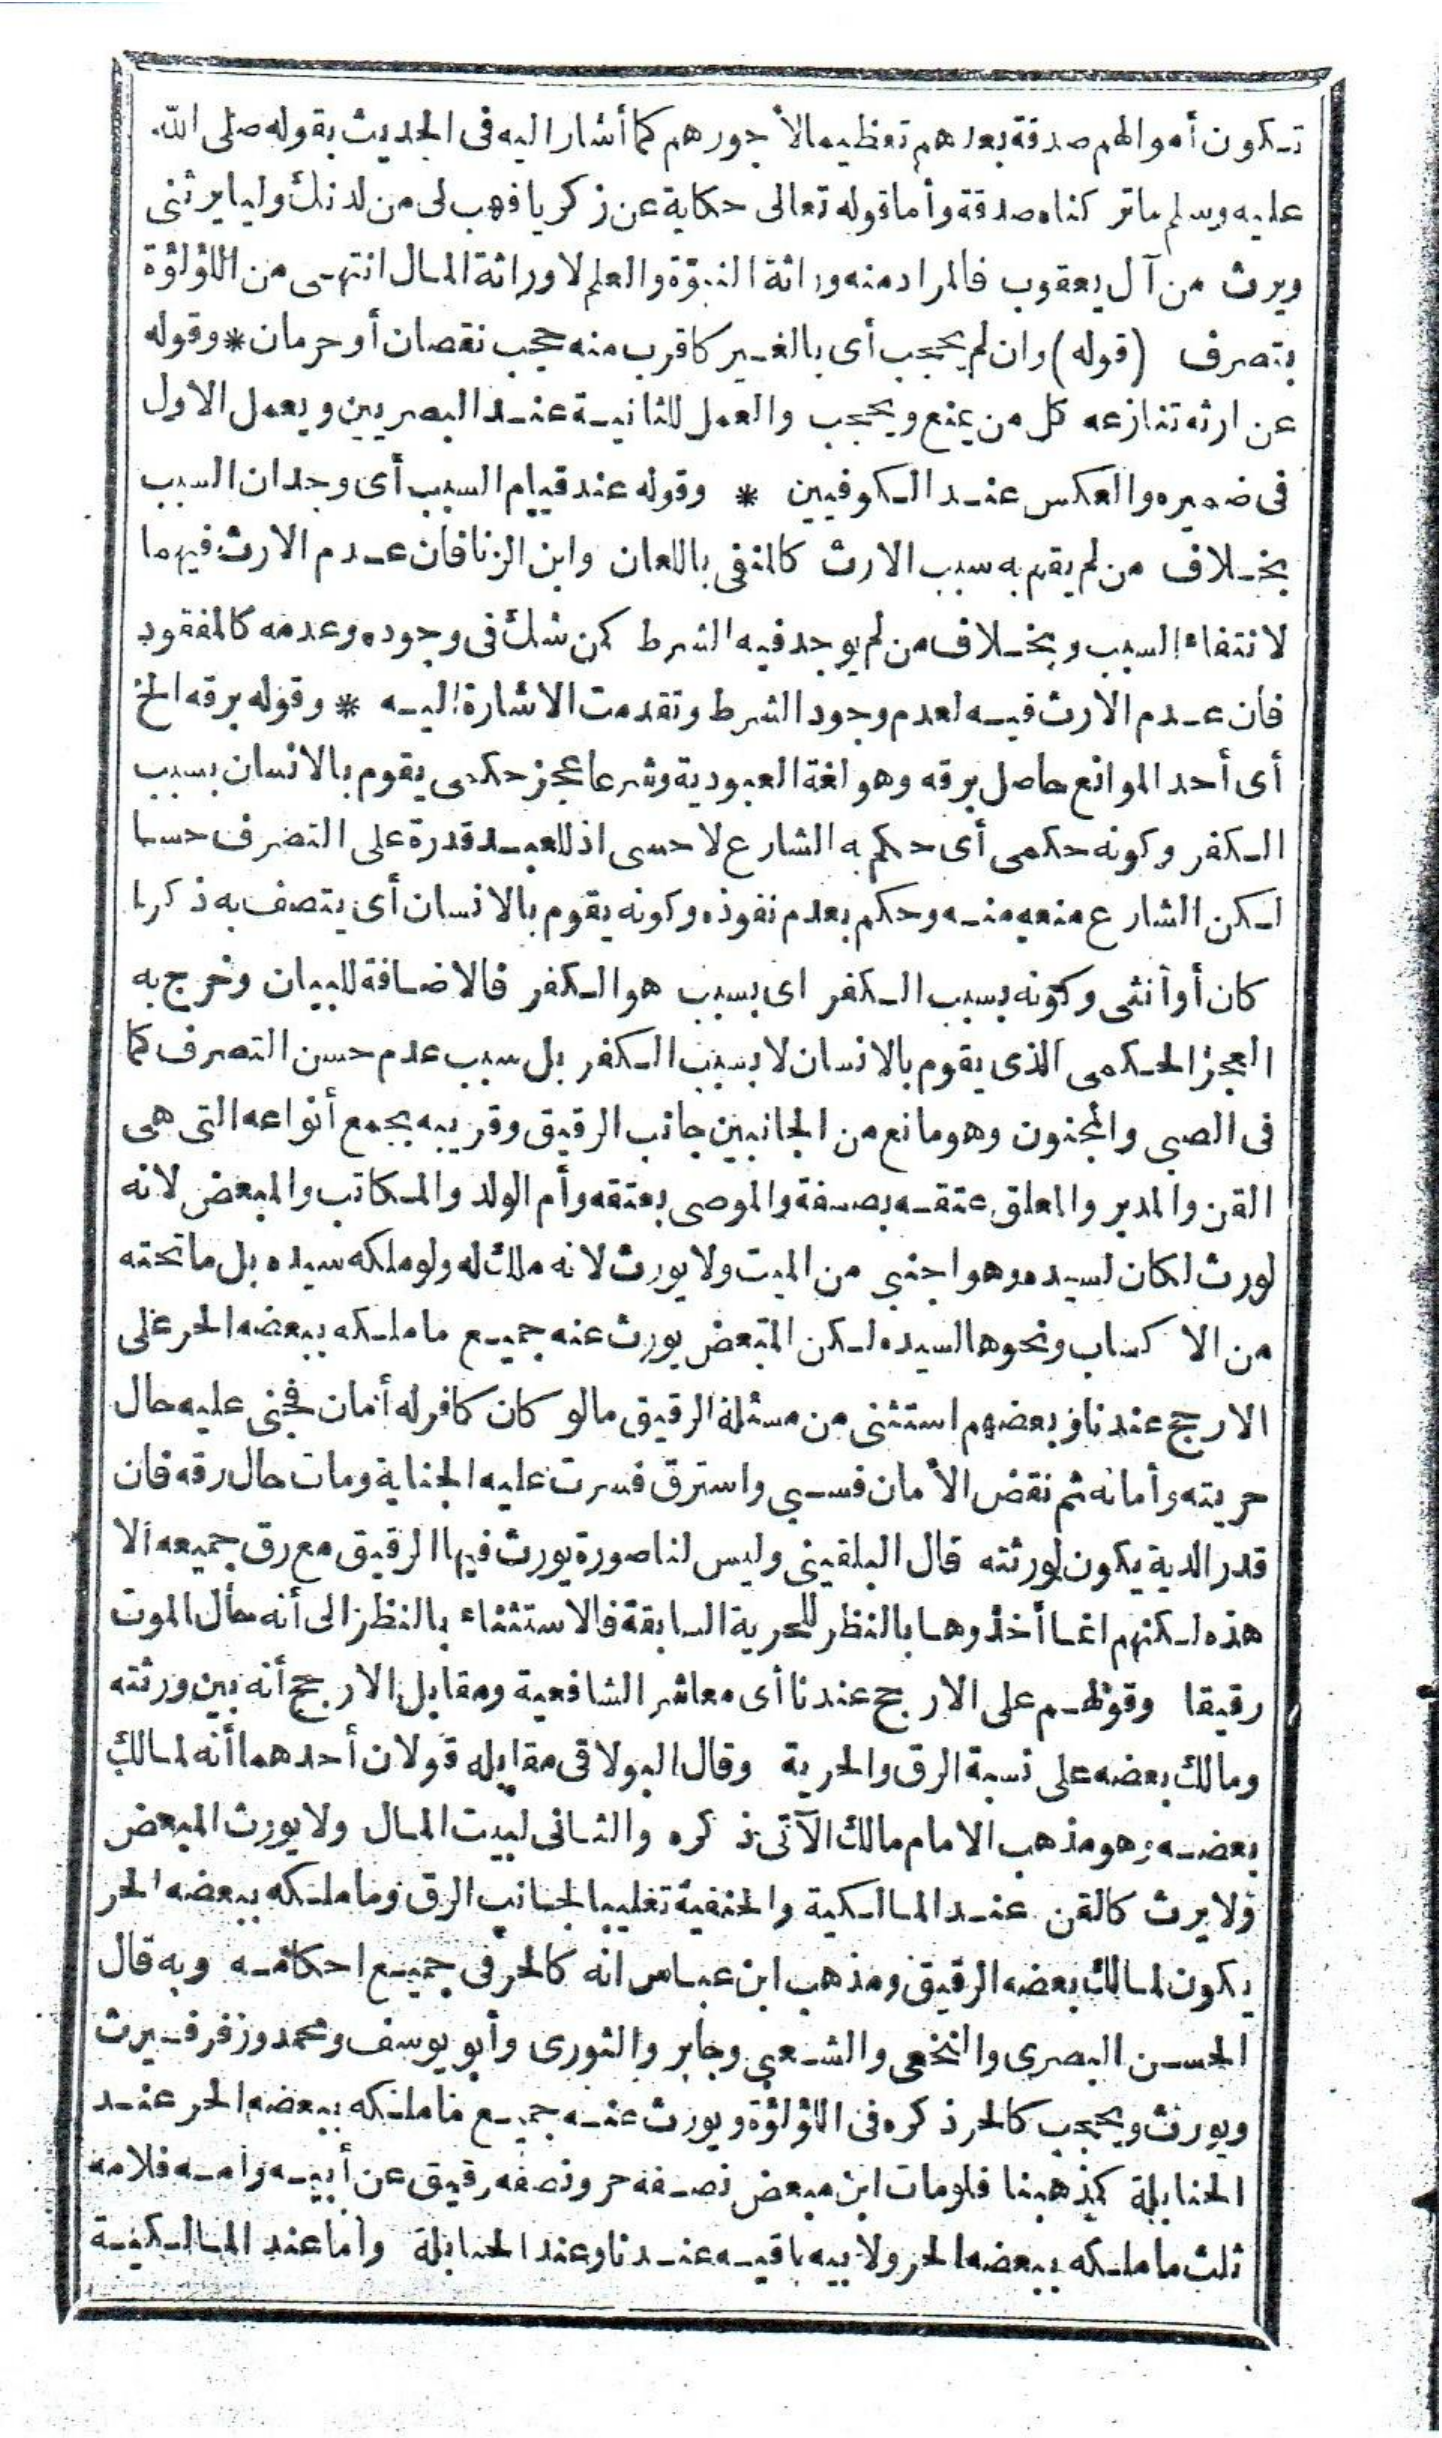 تكون أموالهم صدقة بعدهم تعظيما لأجورهم كما أشار اليه فى الحديث بقوله صلى الله
عليه وسلم ماتركناه صدقة وأما قوله تعالى حكاية عن زكريا فهب لى من لدنك وليا يرثنى
ويرث من آل يعقوب فالمراد منه وراثة النبوّة والعلم لا وراثة المال انتهى من اللؤلؤة
بتصرف (قوله) وان لم يحجب أى بالغير كاقرب منه حجب نقصان أو حرمان * وقوله
عن ارثه تنازعه كل من يمنع ويحجب والعمل للثانية عند البصريين ويعمل الاول
فى ضميره والعكس عند الكوفيين * وقوله عند قيام السبب أى وجدان السبب
بخلاف من لم يقم به سبب الارث كالمنفى باللعان وابن الزنا فان عدم الارث فيهما
لانتفاء السبب وبخلاف من لم يوجد فيه الشرط كمن شك فى وجوده وعدمه كالمفقود
فان عدم الارث فيه لعدم وجود الشرط وتقدمت الاشارة اليه * وقوله برقه الخ
أى أحد الموانع حاصل برقه وهو لغة العبودية وشرعا عجز حكمى يقوم بالانسان بسبب
الكفر وكونه حكمى أى حكم به الشارع لا حسى اذ للعبد قدرة على التصرف حسا
لكن الشارع منعه منه وحكم بعدم نفوذه وكونه يقوم بالانسان أى يتصف به ذكرا
كان أو أنثى وكونه بسبب الكفر اى بسبب هو الكفر فالاضافة للبيان وخرج به
العجز الحكمى الذى يقوم بالانسان لا بسبب الكفر بل سبب عدم حسن التصرف كما
فى الصبى والمجنون وهو مانع من الجانبين جانب الرقيق وقريبه بجمع أنواعه التى هى
القن والمدبر والمعلق عتقه بصفة والموصى بعتقه وأم الولد والمكاتب والمبعض لانه
لو ورث لكان لسيده وهو اجنبى من الميت ولا يورث لانه ملك له ولو ملكه سيده بل ما تحته
من الاكساب ونحوها لسيده لكن المبعض يورث عنه جميع ما ملكه ببعضه الحر على
الارجح عندنا وبعضهم استثنى من مسئلة الرقيق مالو كان كافر له أمان فجنى عليه حال
حريته وأمانه ثم نقض الأمان فسبي واسترق فسرت عليه الجناية ومات حال رقه فان
قدر الدية يكون لورثته قال البلقينى وليس لنا صورة يورث فيها الرقيق مع رق جميعه الا
هذه لكنهم انما أخذوها بالنظر للحرية السابقة فالاستثناء بالنظر الى أنه حال الموت
رقيقا وقولهم على الارجح عندنا أى معاشر الشافعية ومقابل الارجح أنه بين ورثته
ومالك بعضه على نسبة الرق والحرية وقال البولاقى مقابله قولان أحدهما أنه لمالك
بعضه وهو مذهب الامام مالك الآتى ذكره والثانى لبيت المال ولا يورث المبعض
ولا يرث كالقن عند المالكية والحنفية تغليبا لجانب الرق وما ملكه ببعضه الحر
يكون لمالك بعضه الرقيق ومذهب ابن عباس انه كالحر فى جميع احكامه وبه قال
الحسن البصرى والنخعى والشعبى وجابر والثورى وأبو يوسف ومحمد وزفر فيرث
ويورث ويحجب كالحر ذكره فى اللؤلؤة ويورث عنه جميع ما ملكه ببعضه الحر عند
الحنابلة كمذهبنا فلو مات ابن مبعض نصفه حر ونصفه رقيق عن أبيه وامه فلامه
ثلث ما ملكه ببعضه الحر ولابيه باقيه عندنا وعند الحنابلة وأما عند المالكية